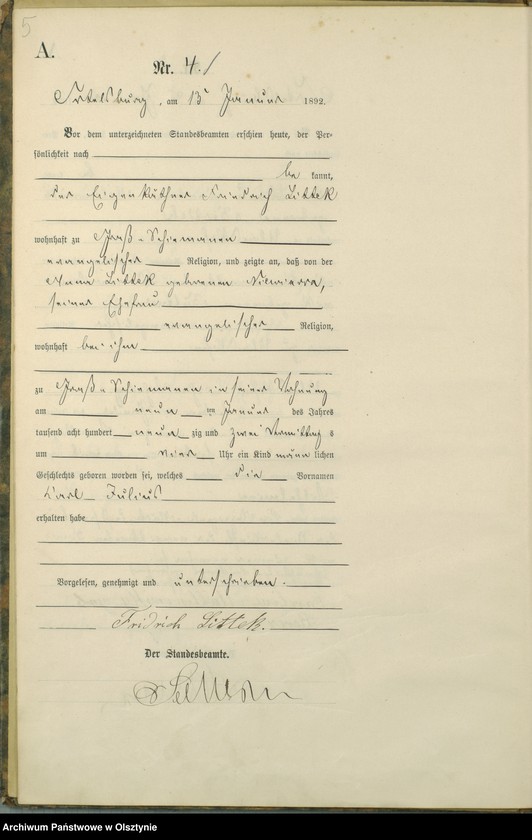 5
A.
Nr. 4.
Ortelsburg, am 15 Januar 1892.
Vor dem unterzeichneten Standesbeamten erschien heute, der Per-
sönlichkeit nach
be kannt,
der Eigenkäthner Friedrich Littek
wohnhaft zu Groß-Schiemanen
evangelischer Religion, und zeigte an, daß von der
Anna Littek geborenen Niewierra,
seiner Ehefrau
evangelischer Religion,
wohnhaft bei ihm
zu Groß-Schiemanen in seiner Wohnung
am neun ten Januar des Jahres
tausend acht hundert neun zig und zwei Vormittag s
um vier Uhr ein Kind männ lichen
Geschlechts geboren worden sei, welches die Vornamen
Karl Julius
erhalten habe
Vorgelesen, genehmigt und unterschrieben.
Fridrich Littek.
Der Standesbeamte.
Archiwum Państwowe w Olsztynie